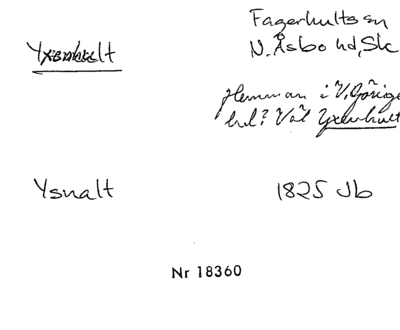 Fagerhults sn
Yxenhult N. Åsbo hd, Sk
Hemman i V,
hd? Väl Yxenhult
Ysnalt 1825 Jb
Nr 18360